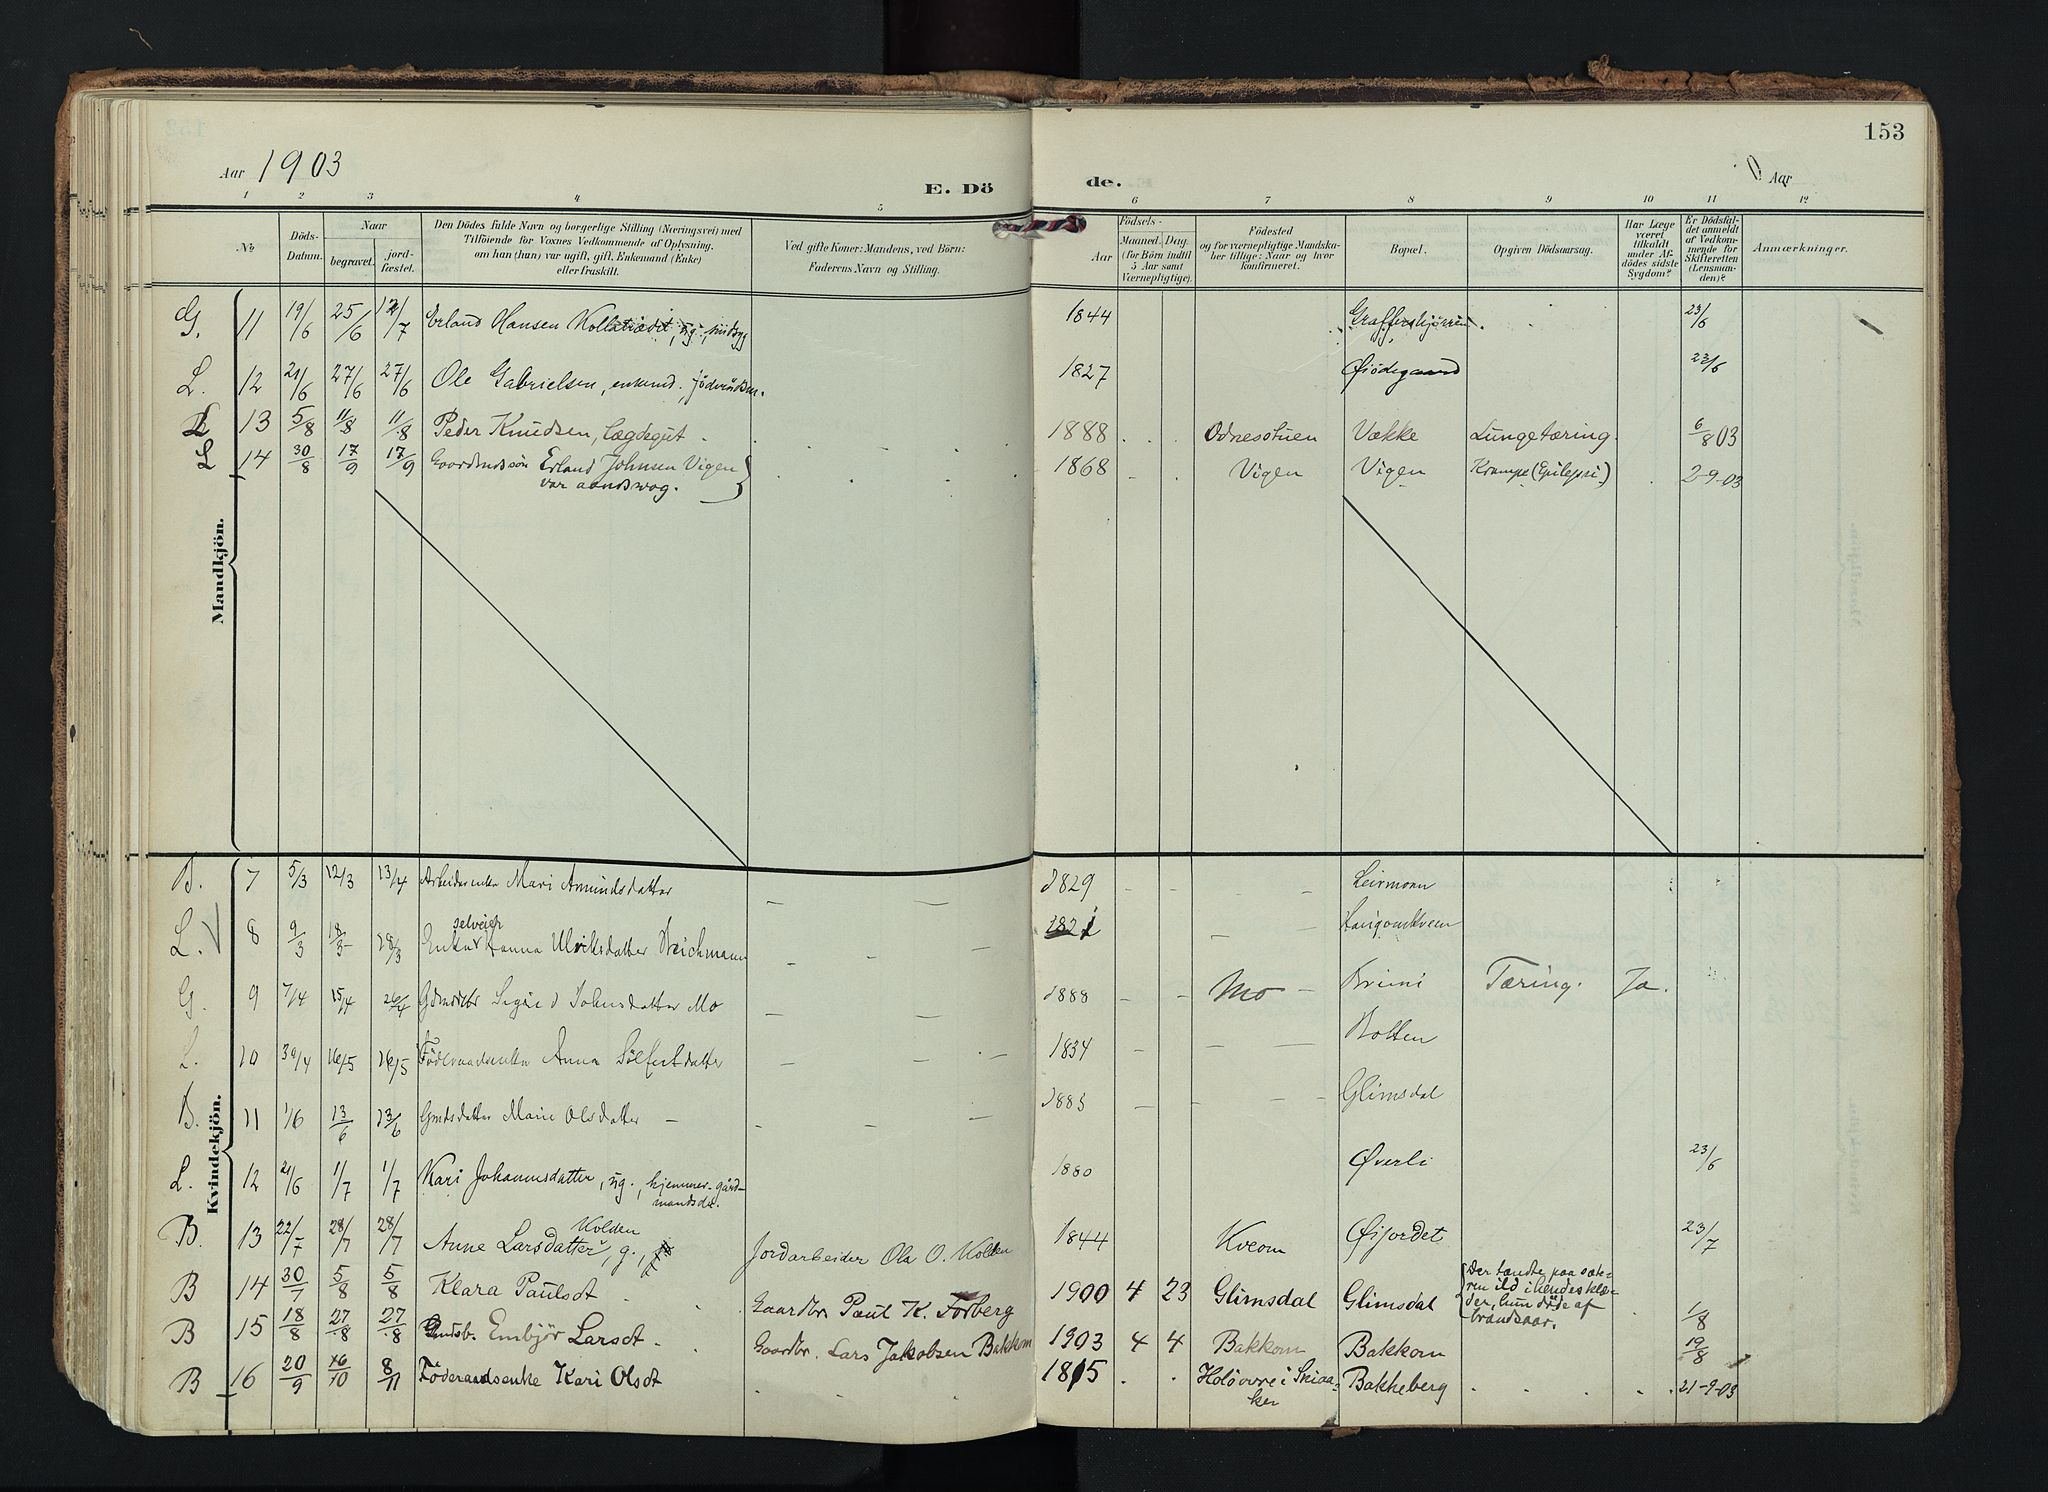 153
Aar 1903
E. Dö de.
Aar
1 2 3 4 5 6 7 8 9 10 11 12
No
Döds-Datum.
Naar
begravet.
jord-fæstet.
Den Dödes fulde Navn og borgerlige Stilling (Næringsvei) med
Tilföiende for Voxnes Vedkommende af Oplysning,
om han (hun) var ugift, gift, Enkemand (Enke)
eller fraskilt.
Ved gifte Koner: Mandens, ved Börn:
Faderens Navn og Stilling.
Födsels-
Aar
Maaned. Dag.
(for Börn indtil
5 Aar samt
Værnepligtige).
Födested
og for værnepligtige Mandska-
ber tillige: Naar og hvor
konfirmeret.
Bopæl.
Opgiven Dödsaarsag.
Har Læge
været
tilkaldt
under Af-
dödes sidste
Sygdom?
Er Dödsfal-
det anmeldt
af Vedkom-
mende for
Skifteretten
(Lensman-
den)?
Anmærkninger.
Mandkjön.
G. 11 19/6 25/6 12/7 Erland Hansen ug., 1844 23/6
L. 12 21/6 27/6 27/6 Ole Gabrielsen, enkemd. 1827 Øiödegaard 23/6
L 13 5/8 11/8 11/8 Peder Knudsen, lægdegut. 1888 Odnesstuen Vække Lungetæring. 6/8 03
L 14 30/8 17/9 17/9 Gaardmdssön Erland Johnsen Vigen 1868 Vigen Vigen Krampe (Epilepsi) 2-9-03
var aandssvag.
Kvindekjön.
B. 7 5/3 12/3 13/4 Arbeiderenke Mari Amundsdatter 1829 Leirmoen
selveier
L. V 8 9/3 18/3 28/3 Enke Hanna Ulriksdatter 1821
G. 9 7/4 15/4 26/4 Sigrid Johnsdatter Mo 1888 Mo Brimi Tæring. Ja.
L. 10 30/4 16/5 16/5 Föderaadsenke Anna Sölfestdatter 1834 Botten
B. 11 1/6 13/6 13/6 Gmdsdatter Marie Olsdatter 1883 Glimsdal
L. 12 21/6 1/7 1/7 Kari Johannesdatter, ug., hjemmev. gård- 1880 Øverli 23/6
mandsdt.
Kolden
B. 13 22/7 28/7 28/7 Anne Larsdatter, g., Jordarbeider Ola O. Kolden 1844 Kveom Øijordet 23/7
B 14 30/7 5/8 5/8 Klara Paulsdt Gaardbr. Paul K. Forberg 1900 4 23 Glimsdal Glimsdal Der tændte paa sæte-
ren ild i hendes klæ-
der, hun döde af
brandsaar. 1/8
B 15 18/8 27/8 27/8 Embjör Larsdt. Gaardbr. Lars Jakobsen Bakkom 1903 4 4 Bakkom Bakkom 19/8
B 16 20/9 16/10 8/11 Föderaadsenke Kari Olsdt 1815 Holövre i Skiaa-
ker Bakkeberg 21-9-03